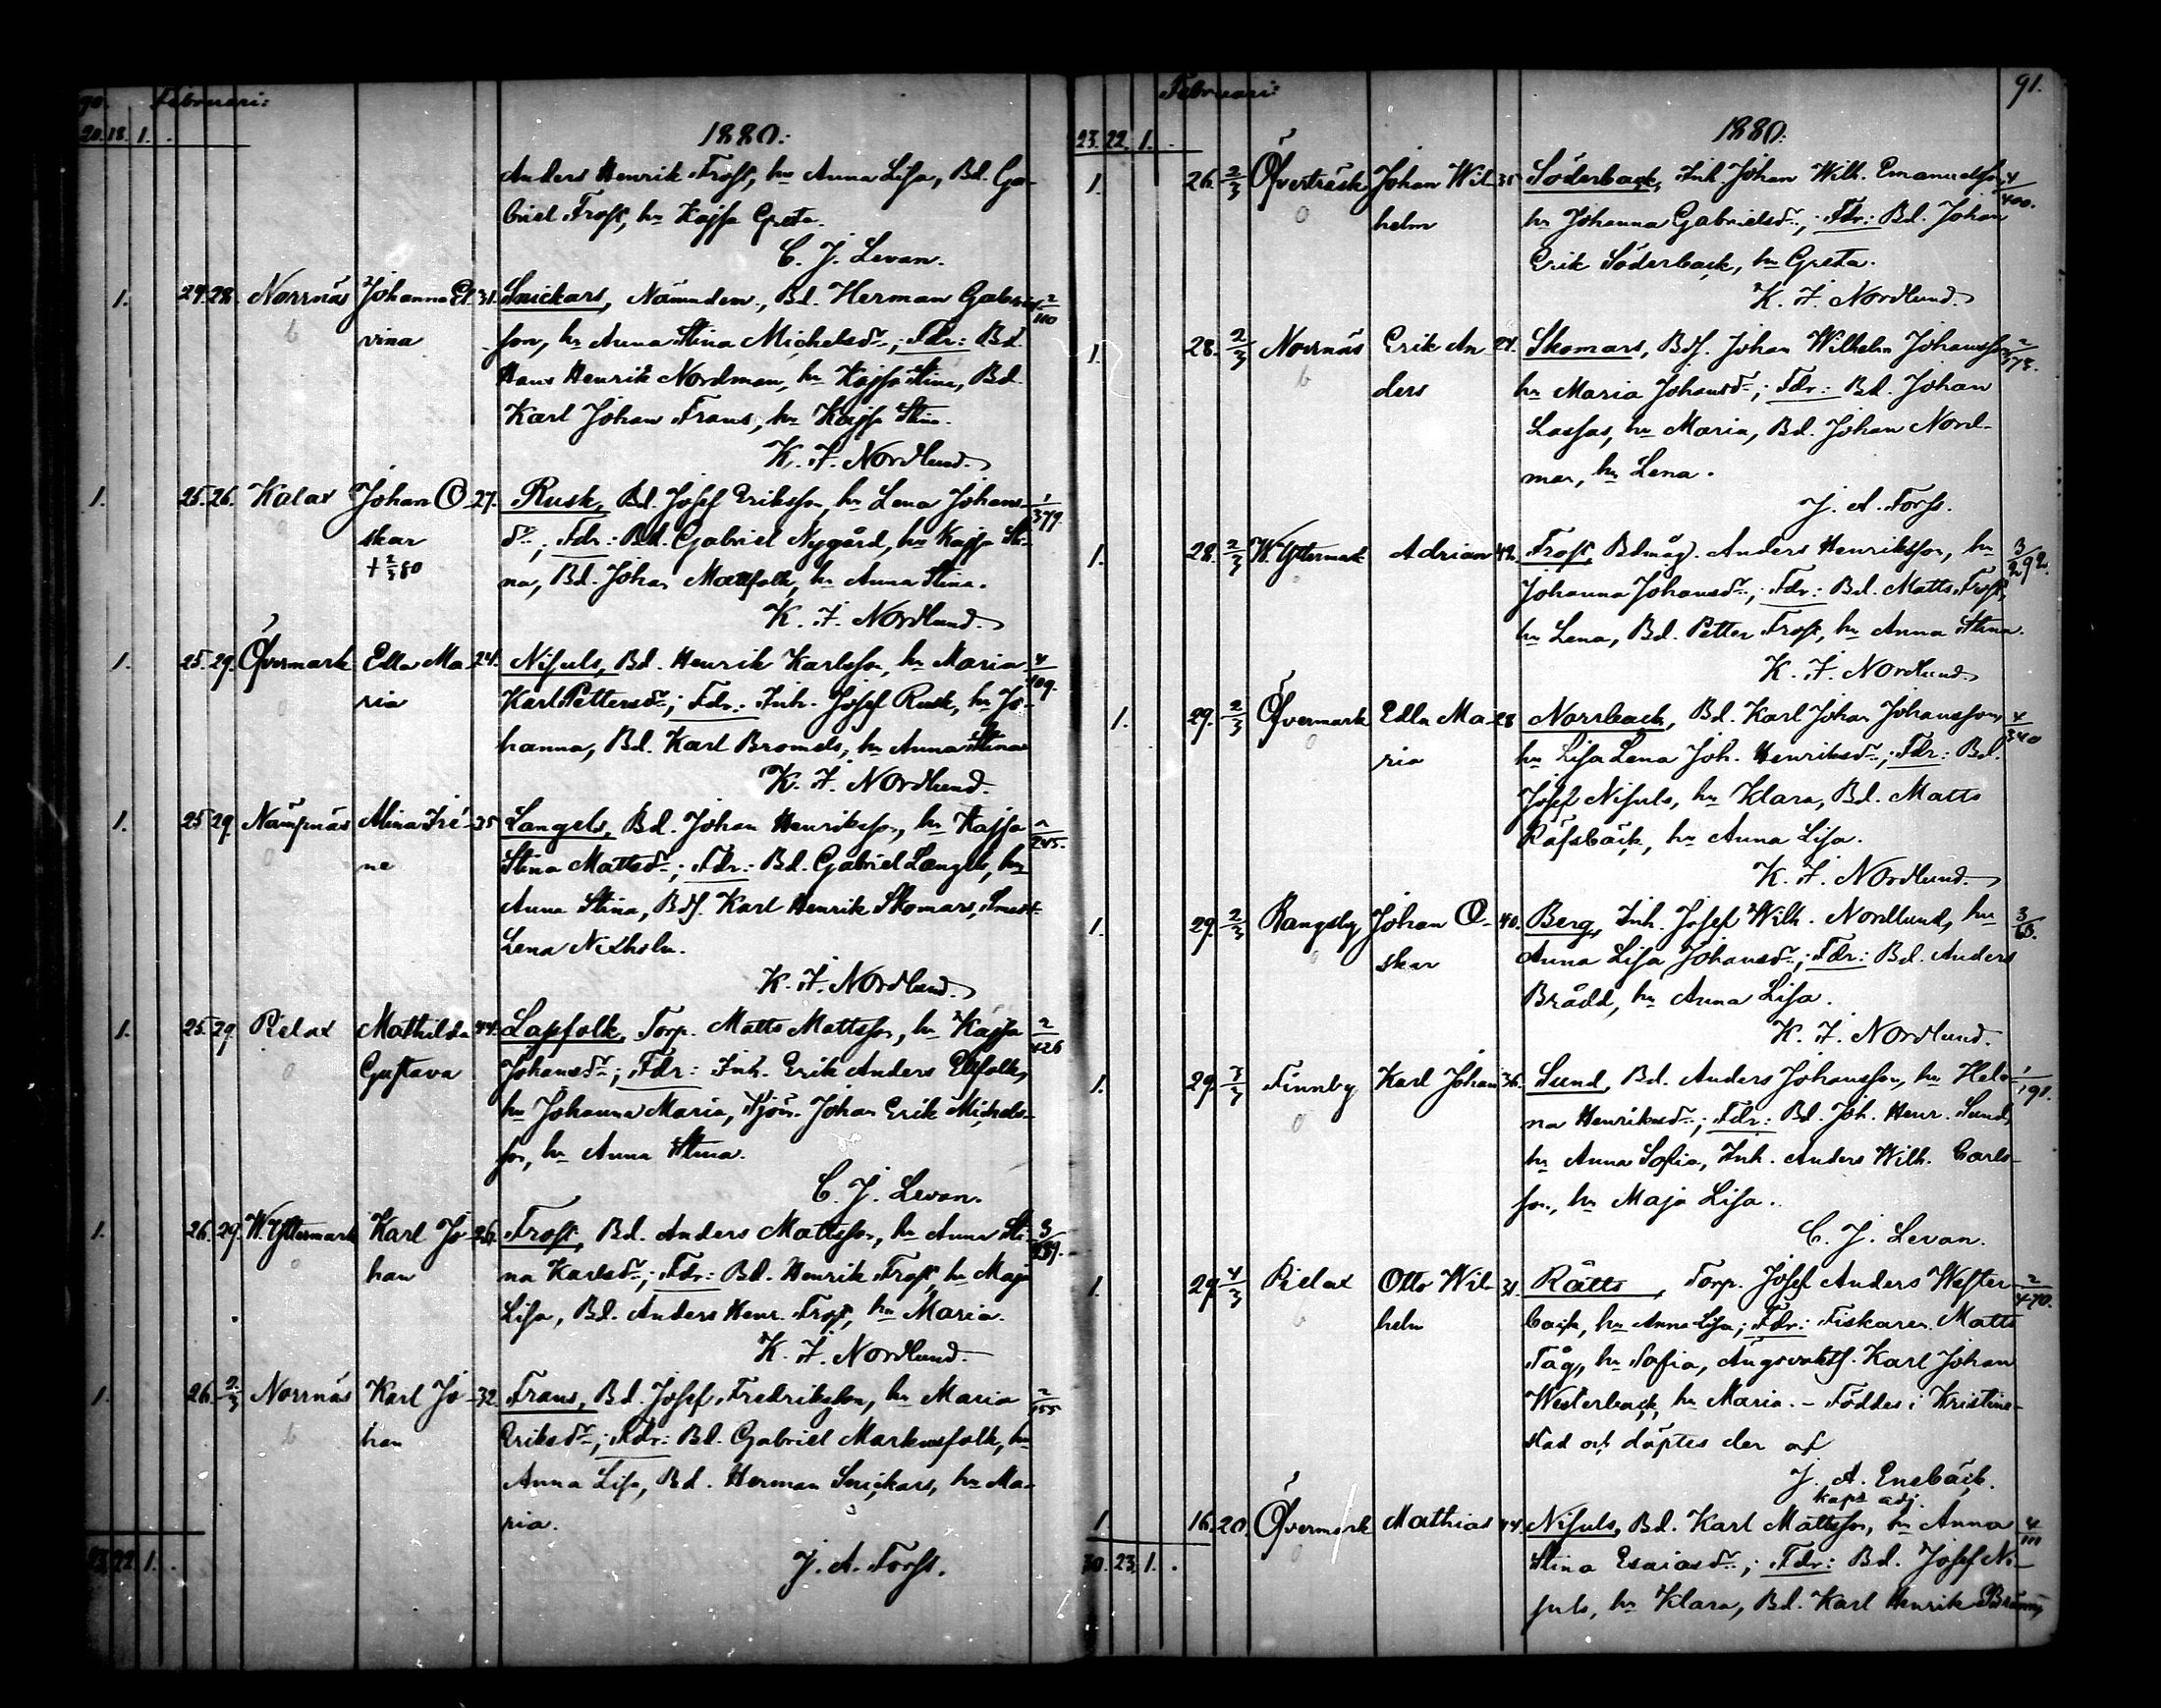 90. Februari:
20. 18. 1. .
1880:
Anders Henrik Frost, hu Anna Lisa, Bd. Ga-
briel Frost, hu Kajsa Greta.
C. J. Levan.
1. 24. 28. Norrnäs Johanna El- 31. Snickars, Nämndem., Bd. Herman Gabriels- 2/110
vina son, hu Anna Stina Michelsdr; Fdr: Bd.
Hans Henrik Nordman, hu Kajsa Stina, Bd.
Karl Johan Frans, hu Kajsa Stina.
K. F. Nordlund.
1. 25. 26. Kalax Johan O- 27. Rusk, Bd. Josef Eriksson, hu Lena Johans- 1/379.
skar dr; Fdr: Bd. Gabriel Nygård, hu Kajsa Sti-
+ 2/3 80 na, Bd. Johan Mattfolk, hu Anna Stina.
K. F. Nordlund.
1. 25. 29. Öfvermark Edla Ma- 24. Nisuls, Bd. Henrik Karlsson, hu Maria 4/109.
ria Karl Pettersdr; Fdr: Inh. Josef Rusk, hu Jo-
hanna, Bd. Karl Bromels, hu Anna Stina
K. F. Nordlund.
1. 25 29. Nämpnäs Mina Iré- 35 Langels, Bd. Johan Henriksson, hu Kajsa 2/245.
ne Stina Mattsdr; Fdr: Bd. Gabriel Langels, hu
Anna Stina, Bds. Karl Henrik Skomars,
Lena Nixholm.
K. F. Nordlund.
1. 25. 29. Pielax Mathilda 44. Lapfolk, Torp. Matts Mattsson, hu Kajsa 2/426
Gustava Johansdr; Fdr: Inh. Erik Anders Ebbfolk,
hu Johanna Maria, Sjöm. Johan Erik Michels-
son, hu Anna Stina.
C. J. Levan.
1. 26. 29. W. Yttermark Karl Jo- 26. Frost, Bd. Anders Mattsson, hu Anna Sti- 3/289.
han na Karlsdr; Fdr: Bd. Henrik Frost, hu Maja
Lisa, Bd. Anders Henr. Frost, hu Maria.
K. F. Nordlund.
1. 26. 2/3 Norrnäs Karl Jo- 32. Frans, Bd. Josef Fredriksson, hu Maria 2/155
han Eriksdr; Fdr: Bd. Gabriel Markusfolk, hu
Anna Lisa, Bd. Herman Snickars, hu Ma-
ria.
J. A. Forss.
23. 22. 1. .
Februari: 91.
23. 22. 1. .
1880:
1. 26. 2/3 Öfverträsk Johan Wil- 35 Söderback, Inh. Johan Wilh. Emanuelsson, 4/400.
helm hu Johanna Gabrielsdr; Fdr: Bd. Johan
Erik Söderback, hu Greta.
K. F. Nordlund.
1. 28. 2/3 Norrnäs Erik An- 21. Skomars, Bds. Johan Wilhelm Johansson, 2/173.
ders hu Maria Johansdr; Fdr: Bd. Johan
Lassas, hu Maria, Bd. Johan Nord-
man, hu Lena.
J. A. Forss.
1. 28. 2/3 W. Yttermark Adrian 42. Frost, Bdmåg. Anders Henriksson, hu 3/292.
Johanna Johansdr; Fdr: Bd. Matts Frost,
hu Lena, Bd. Petter Frost, hu Anna Stina.
K. F. Nordlund.
1. 29. 2/3 Öfvermark Edla Ma- 28 Norrback, Bd. Karl Johan Johansson, 4/340
ria hu Lisa Lena Joh. Henriksdr; Fdr: Bd.
Josef Nisuls, hu Klara, Bd. Matts
Räfsbäck, hu Anna Lisa.
K. F. Nordlund.
1. 29. 2/3 Rangsby Johan O- 40. Berg, Inh. Josef Wilh. Nordlund, hu 3/63.
skar Anna Lisa Johansdr; Fdr: Bd. Anders
Brädd, hu Anna Lisa.
K. F. Nordlund.
1. 29. 7/3 Finnby Karl Johan 36. Sund, Bd. Anders Johansson, hu Hele- 1/191.
na Henriksdr; Fdr: Bd. Joh. Henr. Sund,
hu Anna Sofia, Inh. Anders Wilh. Carls-
son, hu Maja Lisa.
C. J. Levan.
1. 29. 4/3 Pielax Otto Wil- 31. Rätts, Torp. Josef Anders Wester- 2/470.
helm back, hu Anna Lisa; Fdr: Fiskaren Matts
Tåg, hu Sofia, Ångsvakts. Karl Johan
Westerback, hu Maria. - Föddes i Kristine-
stad och döptes der af
J. A. Enebäck.
kaps adj.
1. 16. 20. Öfvermark Mathias 44. Nisuls, Bd. Karl Mattsson, hu Anna 4/111
30. 23. 1. . Stina Esaiasdr; Fdr: Bd. Josef Ni-
suls, hu Klara, Bd. Karl Henrik